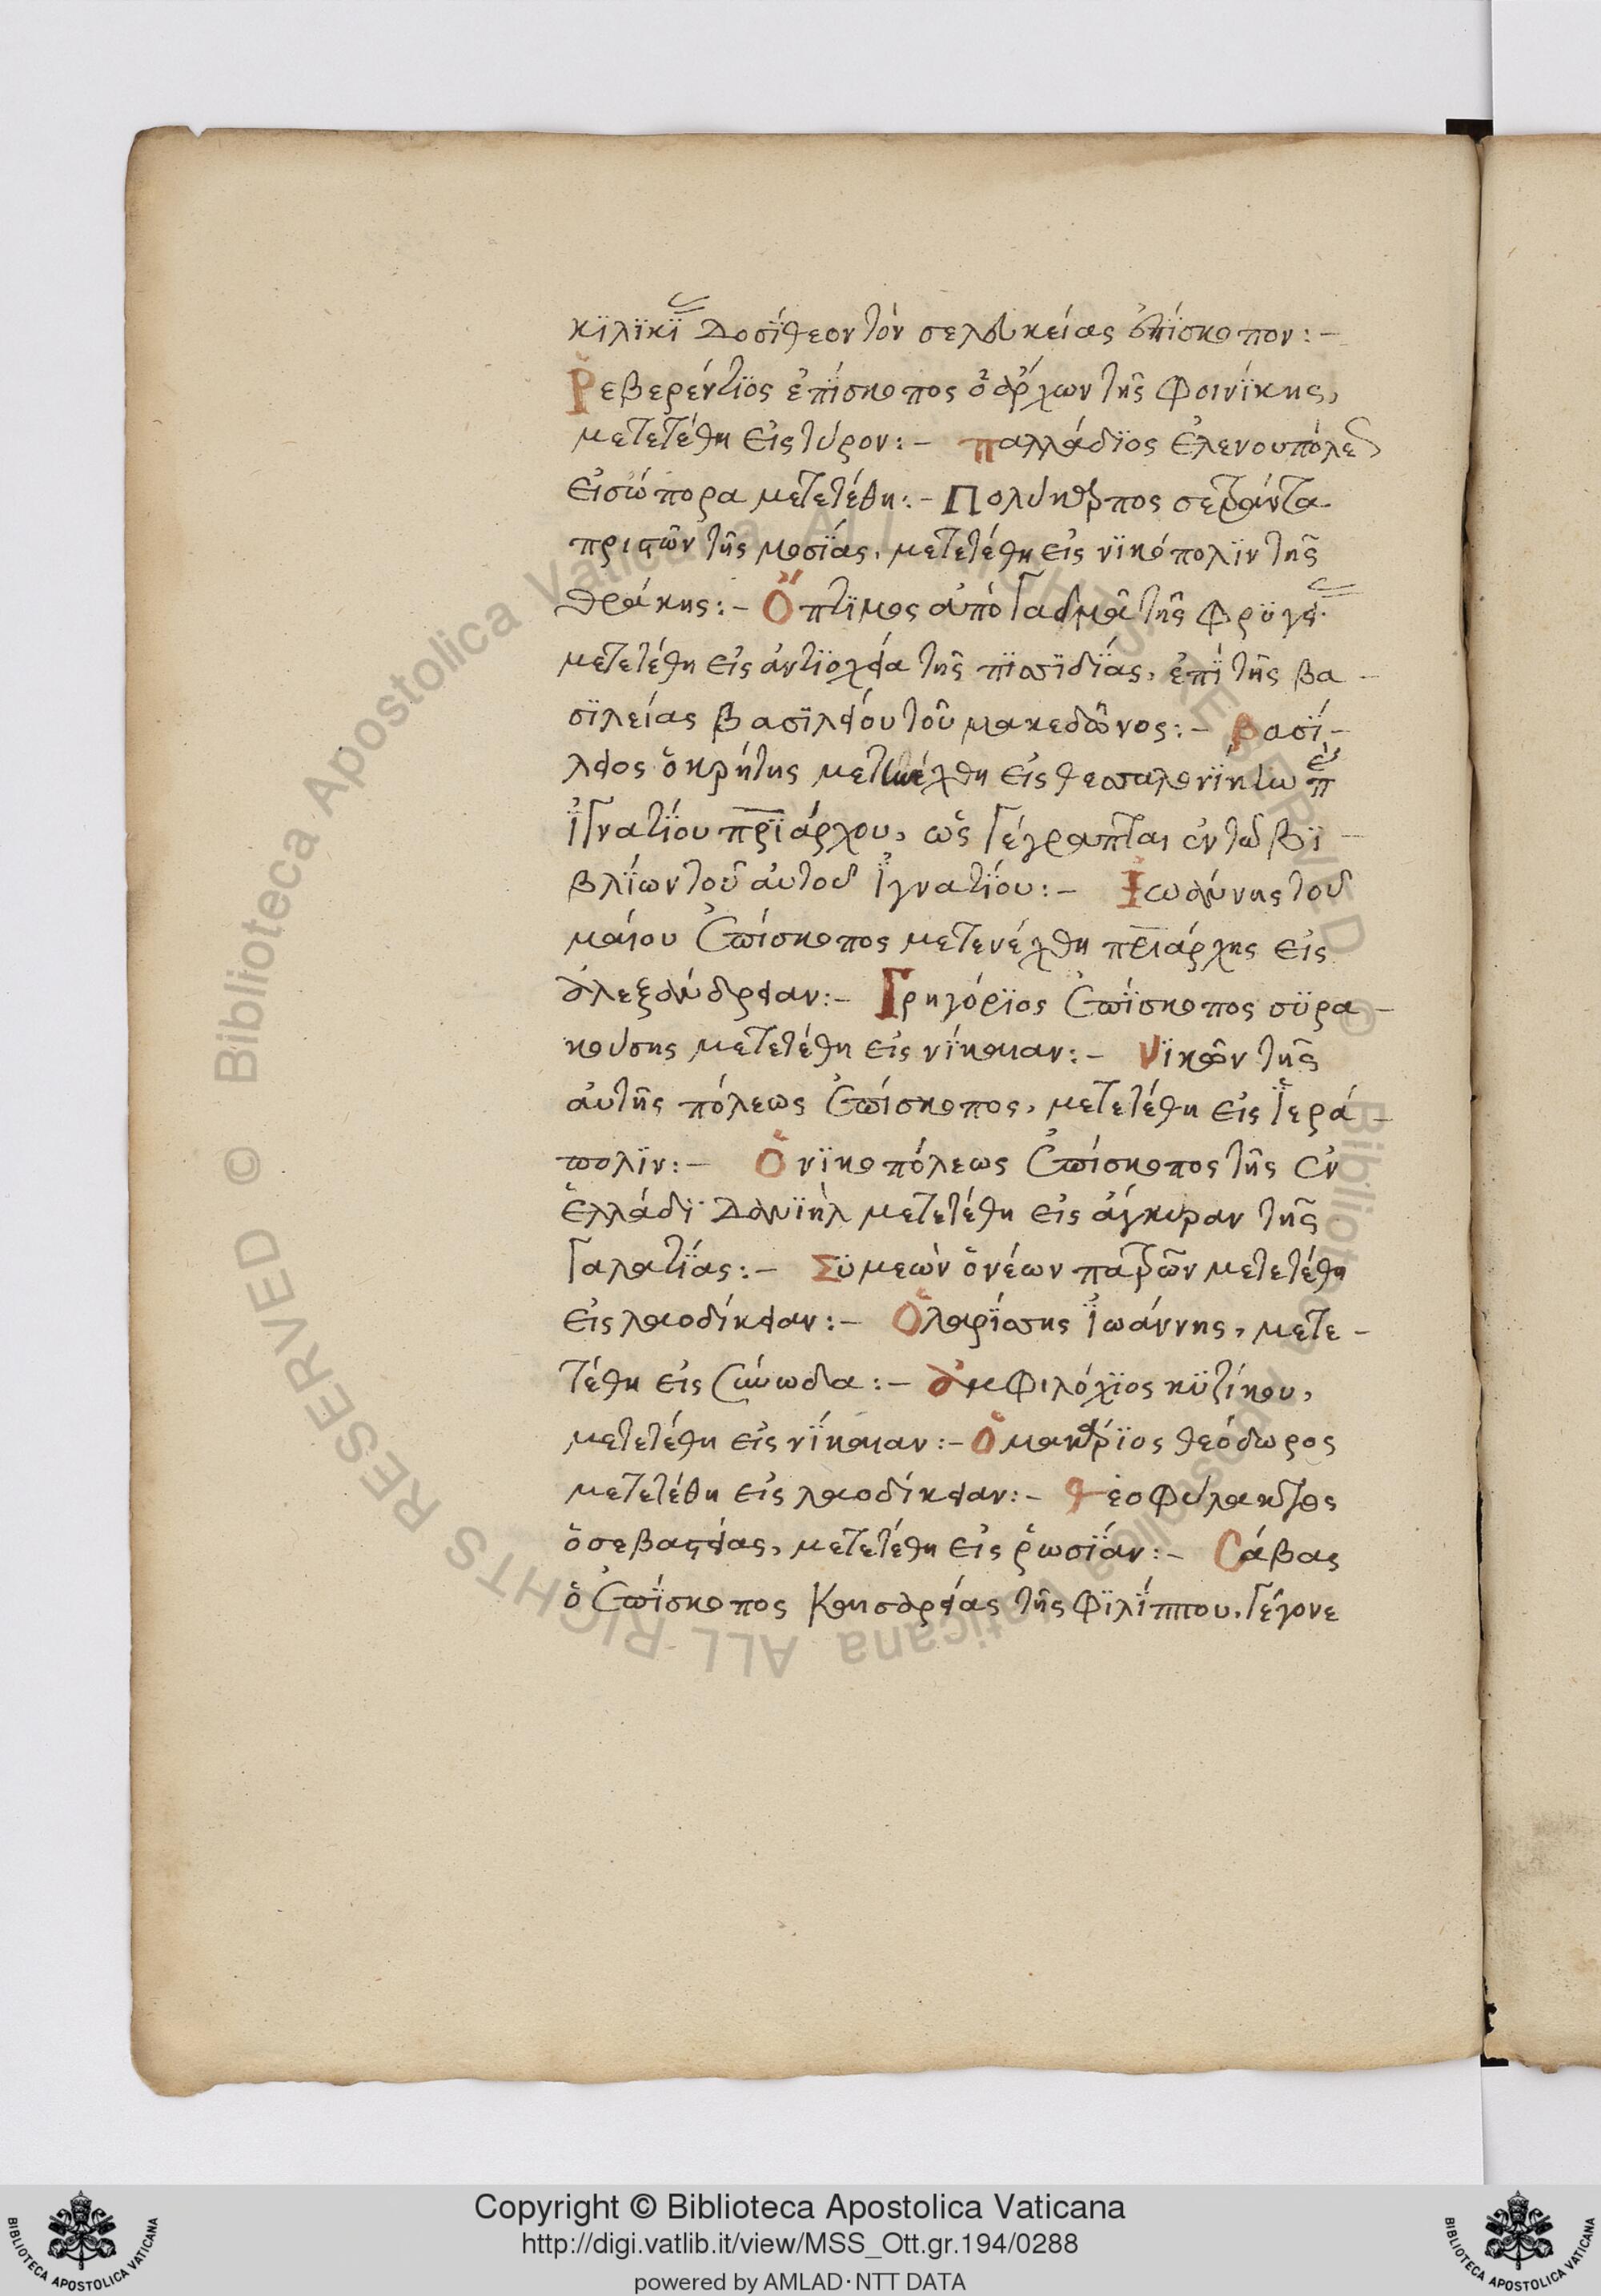 κϊλϊκϊ Δοσϊθεον τὸν σελευκείας ἐπίσκοπον:–
Ῥεβερέντϊος ἐπΐσκοπος ὁ ἄρχων τῆς Φοινίκης,
μετετέθη εἰς τύρον:– παλλάδϊος ἐλενουπόλε
εἰσώπορα μετετέθη:– Πολύκαρπος σεξαντα
πριστῶν τῆς μοσΐας, μετετέθη εἰς νϊκόπολϊν τῆς
θράκης:– Ὄπτϊμος ἀπὸ Γαδμᾶ τῆς Φρϋγε
μετετέθη εἰς ἀντϊοχεία τῆς πϊσϊδΐας, ἐπΐ τῆς βα-
σϊλείας βασϊλείου τοῦ μακεδῶνος:– βασΐ-
λειος ὁ κρήτης μετηνέχθη εἰς θεσαλονϊκη ἐπ
ἰγνατΐου πρϊάρχου, ὡς γέγραπται ἐν τῶ βϊ-
βλΐων τοῦ αὐτοῦ ἰγνατΐου:– Ἰωάννης τοῦ
μαίου ἐπίσκοπος μετενέχθη πριάρχης εἰς
ἀλεξάνδρειαν:– Γρηγόρϊος ἐπΐσκοπος σϋρα-
κούσης μετετέθη εἰς νίκαιαν:– Νϊκῶν τῆς
αὐτῆς πόλεως ἐπίσκοπος, μετετέθη εἰς ἱερά-
πολϊν:– Ὁ νϊκοπόλεως ἐπίσκοπος τῆς ἐν
ἑλλάδϊ Δανϊὴλ μετετέθη εἰς ἄγκυραν τῆς
Γαλατΐας:– Σϋμεὼν ὁ νέων πατρῶν μετετέθη
εἰς λαοδίκειαν:– Ὁ λαρΐσης Ἰωάννης, μετε-
τέθη εἰς Σύνωδα:– ἀμΦιλόχϊος κϋζίκου,
μετετέθη εἰς νΐκαιαν:– Ὁ μακάρϊος θεόδωρος
μετετέθη εἰς λαοδίκειαν:– θεοΦύλακτος
ὁ σεβαστείας, μετετέθη εἰς ῥωσΐαν:– Σάβας
ὁ ἐπΐσκοπος Καισαρείας τῆς Φϊλΐππου, Γέγονε
Copyright © Biblioteca Apostolica Vaticana
http://digi.vatlib.it/view/MSS_Ott.gr.194/0288
powered by AMLAD·NTT DATA
BIBLIOTECA APOSTOLICA VATICANA
BIBLIOTECA APOSTOLICA VATICANA
© Biblioteca Apostolica Vaticana ALL RIGHTS RESERVED
© Biblioteca Apostolica Vaticana ALL RIGHTS RESERVED